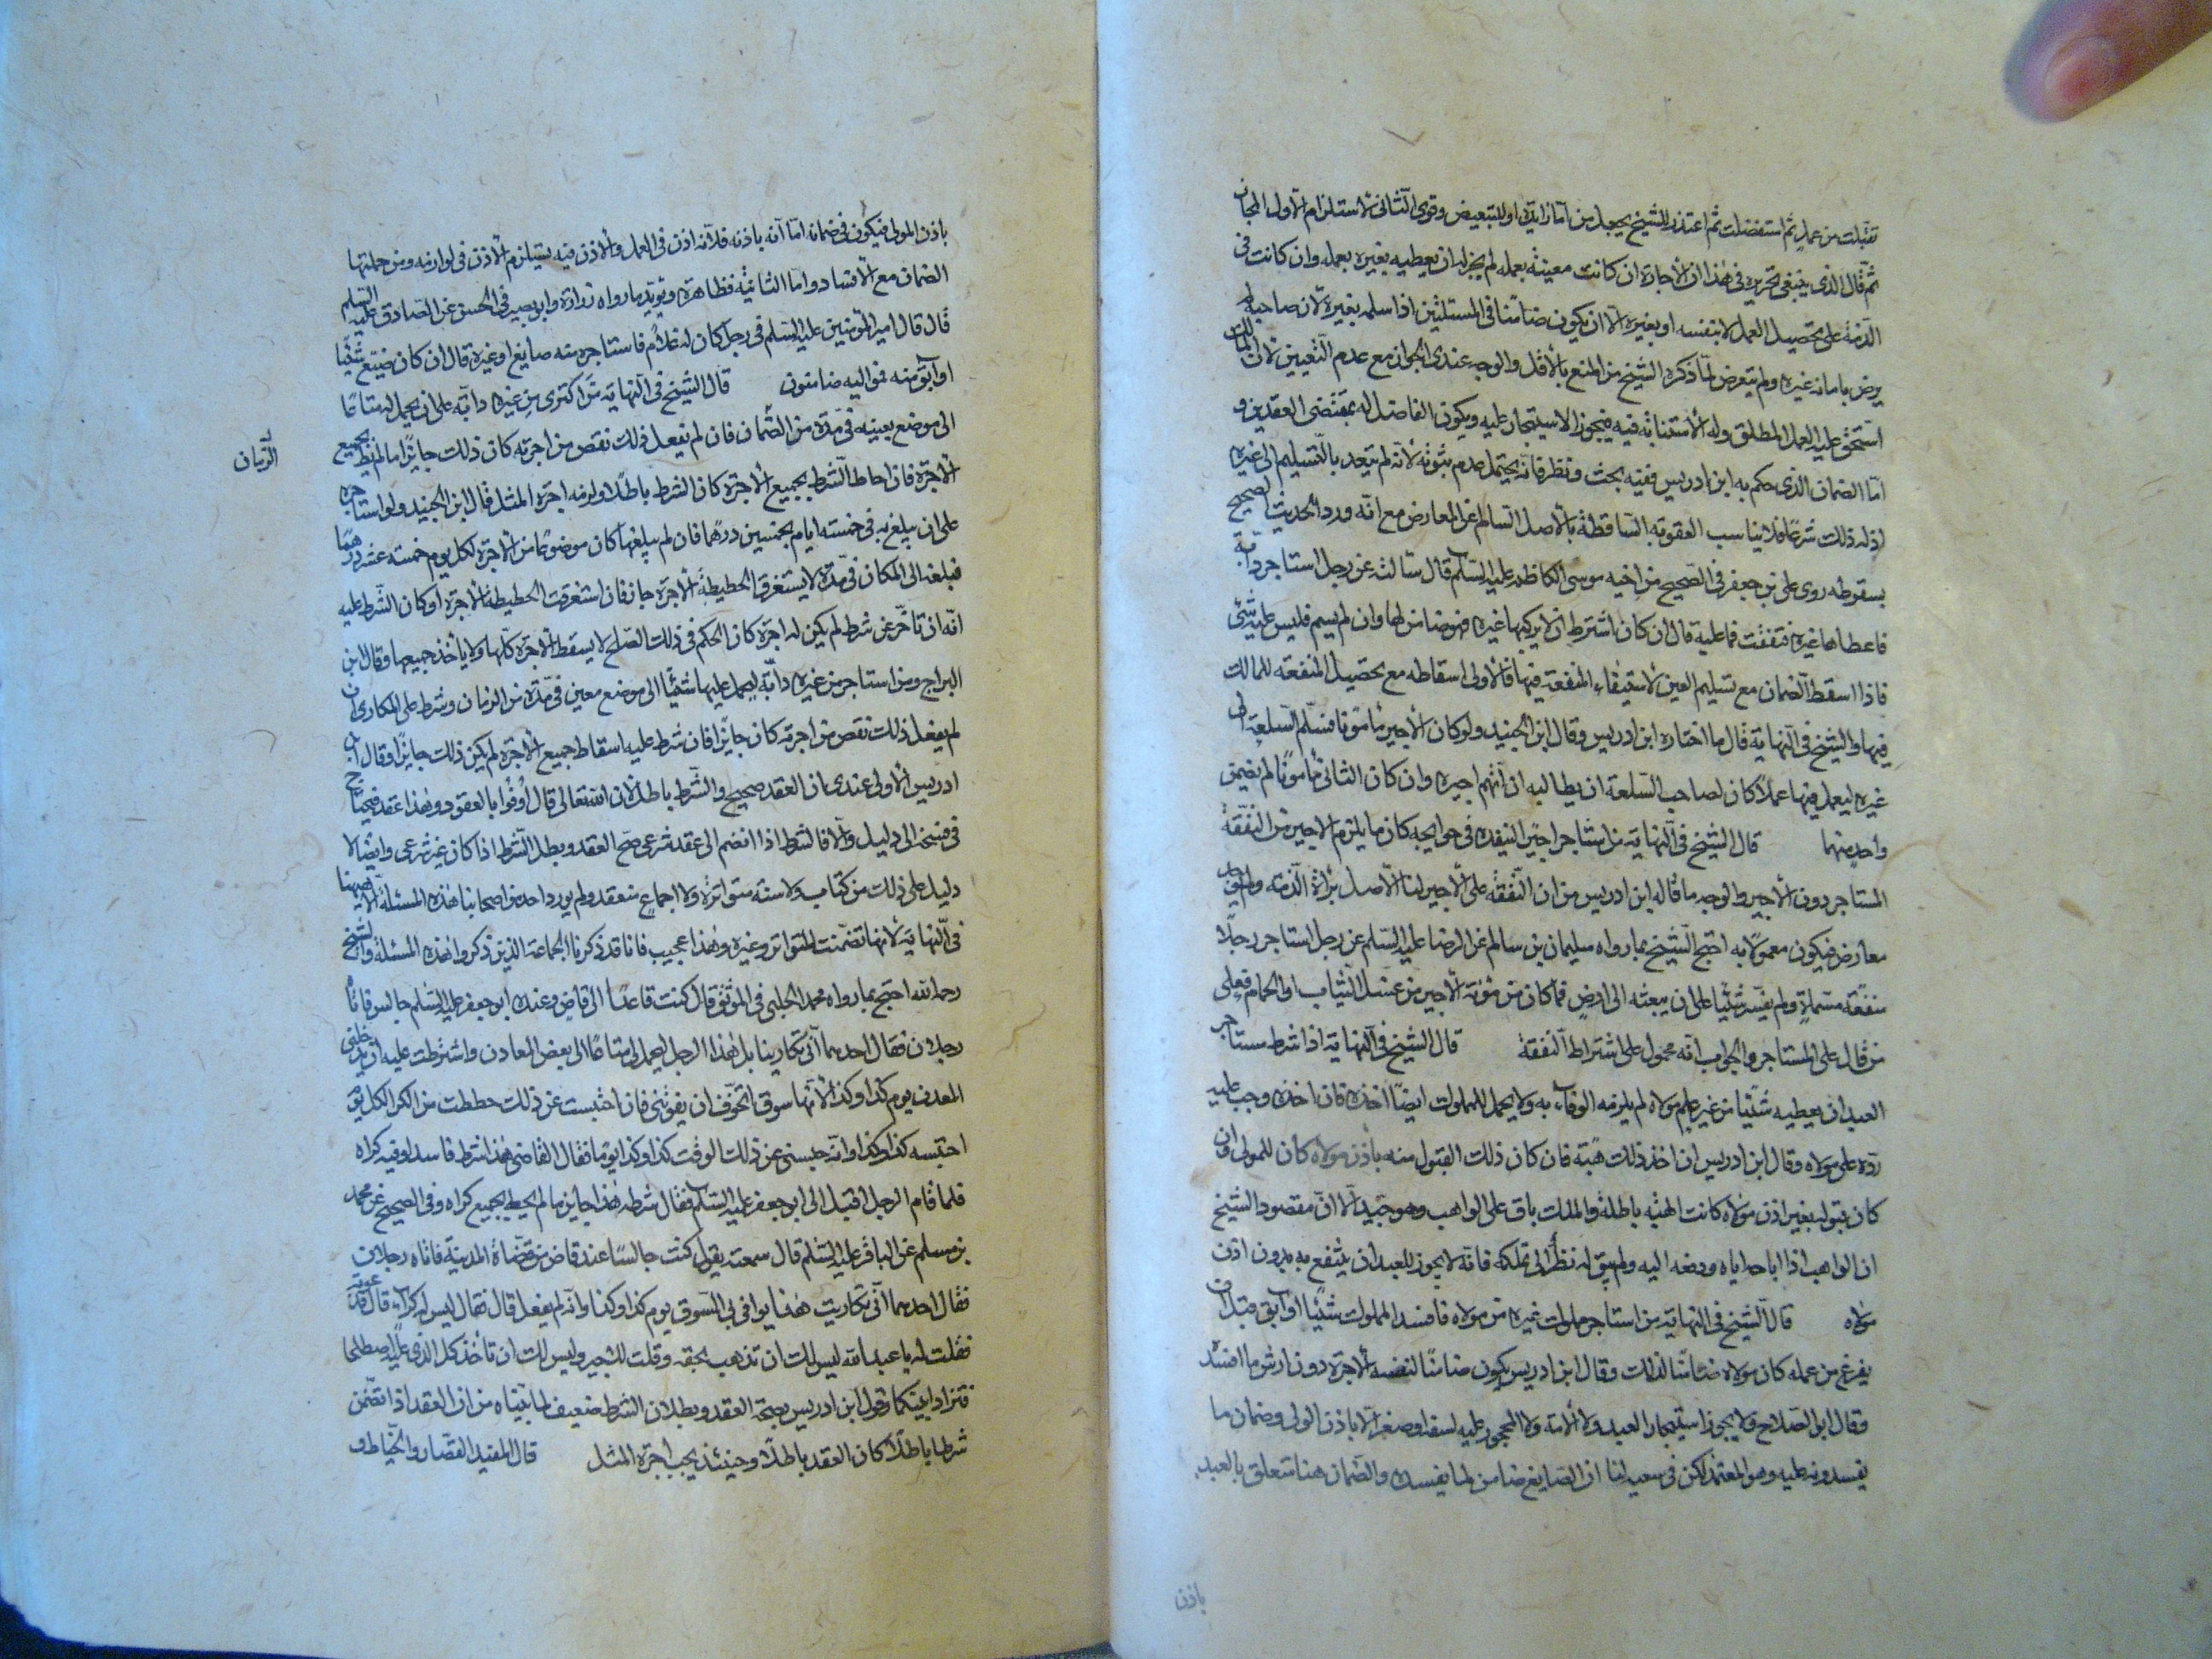 تقبلت من عمل ثم استفضلت ثم اعتذر الشيخ بجعل من امّا زايدة او للتبعيض وقوى الثانى لاستلزام الاول المجاز
ثم قال الذى ينبغى تحريره فى هذا ان الاجارة ان كانت معينة بعمله لم يجز له ان يعطيه بغيره يعمله وان كانت فى
الذمة على تحصيل العمل لا بنفسه او بغيره الا ان يكون ضامنا فى المسئلتين اذا سلمه بغيره لان صاحبه لم
يرض بامانه غيره ولم يتعرض لما ذكره الشيخ من المنع بالاقل والوجه عندى الجواز مع عدم التعيين لان المالك
استحق عليه العمل المطلق وله الاستنابة فيه فيجوز الاستيجار عليه ويكون الفاضل له بمقتضى العقدين و
امّا الضمان الذى حكم به ابن ادريس ففيه بحث ونظر فانه يحتمل عدم ثبوته لانه لم يتعد بالتسليم الى غيره
اذ له ذلك شرعًا فلا يناسب العقوبة الساقطة بالاصل السالم عن المعارض مع انه ورد الحديث الصحيح
بسقوطه روى على بن جعفر فى الصحيح من اخيه موسى الكاظم عليه السلم قال سالته عن رجل استاجر دابة
فاعطاها غيره فنفقت فما عليه قال ان كان اشترط ان لا يركبها غيره فهو ضامن لها وان لم يسم فليس عليه شئ
فاذا اسقط الضمان مع تسليم العين لاستيفاء المنفعة فيها فالاولى اسقاطه مع تحصيل المنفعة للمالك
فيها والشيخ فى النهاية قال ما اختاره ابن ادريس وقال ابن الجنيد ولو كان الاجير مامونا فسلم السلعة الى
غيره ليعمل فيها عملاً كان لصاحب السلعة ان يطالبه ان اتهم اجيره وان كان الثانى مامونًا لم يضمن
واحد منهما قال الشيخ فى النهاية من استاجر اجيرا لينفده فى حوايجه كان ما يلزم الاجير من النفقة
المستاجر دون الاجير والوجه ما قاله ابن ادريس من ان النفقة على الاجير لنا الاصل براة الذمة ولم يوجد
معارض فيكون معمولاً به احتج الشيخ بما رواه سليمان بن سالم عن الرضا عليه السلم عن رجل استاجر رجلاً
بنفقة مسماة ولم يفسر شيئا على ان يبعثه الى ارض فما كان من مؤنة الاجير من غسل الثياب او الحمام فعلى
من قال على المستاجر والجواب انه محمول على اشتراط النفقة قال الشيخ فى النهاية اذا اشرط مستاجر
العبد ان يعطيه شيئا من غير علم مولاه لم يلزمه الوفاء به ولا يحل للمملوك ايضًا اخذه فان اخذه وجب عليه
رده على مولاه وقال ابن ادريس ان اخذ ذلك هبة فان كان ذلك القبول منه باذن مولاه كان للمولى وان
كان قبوله بغير اذن مولاه كانت الهبة باطلة والملك باق على الواهب وهو جيد الا ان مقصود الشيخ
ان الواهب اذا اباحه اياه ودفعه اليه ولم يبق له نظر الى تملكه فانه لا يجوز للعبد ان ينتفع به بدون اذن
مولاه قال الشيخ فى النهاية من استاجر مملوك غيره من مولاه فافسد المملوك شيئًا او ابق قبل ان
يفرغ من عمله كان مولاه ضامنًا لذلك وقال ابن ادريس يكون ضامنًا لنفسه الاجرة دون ارش ما افسد
وقال ابو الصلاح ولا يجوز استيجار العبد ولا الامة ولا المحجور عليه لسفه او صغر الا باذن الولى وضمان ما
يفسدونه عليه وهو المعتمد لكن فى سعيه لنا ان الصايغ ضامن لما يفسده والضمان هنا متعلق بالعبد
باذن
باذن المولى فيكون فى ضمانه امّا انه باذنه فلانه اذن فى العمل والاذن فيه يستلزم الاذن فى لوازمه ومن جملتها
الضمان مع الافساد وامّا الثانية فظاهرة ويؤيد ما رواه زرارة وابو بصير فى الحسن عن الصادق عليه السلم
قال قال امير المؤمنين عليه السلم فى رجل كان له غلام فاستاجره منه صايغ او غيره قال ان كان ضيع شيئًا
او ابق منه فمواليه ضامنون قال الشيخ فى النهاية من اكترى من غيره دابه على ان يحمل له متاعًا
الى موضع بعينه فى مدة من الضمان فان لم يفعل ذلك نقص من اجرته كان ذلك جايزًا ما لم يحط بجميع
الزمان
الاجرة فان احاط الشرط بجميع الاجرة كان الشرط باطلاً ولزمه اجرة المثل قال ابن الجنيد ولو استاجره
على ان يبلغ به فى خمسة ايام بخمسين درهما فان لم يبلغها كان موضوعًا من الاجرة لكل يوم خمسة عشر درهمًا
فبلغه الى المكان فى مدة لا يستغرق الحطيطة الاجرة جاز فان استغرقت الحطيطة الاجرة او كان الشرط عليه
انه ان تاخر عن شرط لم يكن له اجرة كان الحكم فى ذلك الصلح لا يسقط الاجرة كلها ولا ياخذ جميعها وقال ابن
البراج ومن استاجر من غيره دابّة ليحمل عليها شيئًا الى موضع معين فى مدة من الزمان وشرط على المكارى ان
لم يفعل ذلك نقص من اجرته كان جايزًا فان شرط عليه اسقاط جميع الاجرة لم يكن ذلك جايزًا وقال ابن
ادريس الاولى عندى ان العقد صحيح والشرط باطل لان الله تعالى قال اوفوا بالعقود وهذا عقد فيحتاج
فى فسخه الى دليل والا فالشرط اذا انضم الى عقد شرعى صح العقد وبطل الشرط اذا كان غير شرعى وايضا لا
دليل على ذلك من كتاب ولا سنة متواترة ولا اجماع منعقد ولم يورد احد من اصحابنا هذه المسئلة الا شيخنا
فى النهاية لانها تضمنت المتواتر وغيره وهذا عجيب فانا قد ذكرنا الجماعة الذين ذكروا هذه المسئلة والشيخ
رحمه الله احتج بما رواه محمد الحلبى فى الموثق قال كنت قاعدًا الى قاض وعنده ابو جعفر عليه السلم جالس فاتاه
رجلان فقال احدهما انى تكاريت ابل هذا الرجل ليحمل لى متاعًا الى بعض المعادن واشترطت عليه ان يدخلنى
المعدن يوم كذا وكذا لانها سوق اتخوف ان يفوتنى فان احتبست عن ذلك حططت من الكرا لكل يوم
احتبسه كذا وكذا وانه حبسنى عن ذلك الوقت كذا وكذا يومًا فقال القاضى هذا شرط فاسد اوفه كراه
فلما قام الرجل اقبل الى ابو جعفر عليه السلم فقال شرطه هذا جايز ما لم يحط بجميع كراه وفى الصحيح عن محمد
بن مسلم عن الباقر عليه السلم قال سمعته يقول كنت جالسًا عند قاض من قضاة المدينة فاتاه رجلان
فقال احدهما انى تكاريت هذا يوافى بى السوق يوم كذا وكذا وانه لم يفعل قال فقال ليس له كراء قال فدعوته
فقلت له يا عبد الله ليس لك ان تذهب بحقه وقلت للاجير وليس لك ان تأخذ كل الذى عليه اصطلحا
فترادا بينكما وقول ابن ادريس بصحة العقد وبطلان الشرط ضعيف لما بيّناه من ان العقد اذا تضمن
شرطا باطلًا كان العقد باطلًا وحينئذ يجب اجرة المثل قال المفيد القصار والخياط و